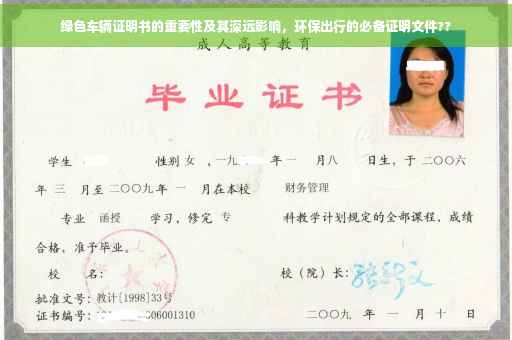 绿色车辆证明书的重要性及其深远影响，环保出行的必备证明文件??
成人高等教育
毕业证书
学生 性别 女 ，一九 年一 月八 日生，于二〇〇六
年 三 月至二〇〇九年 一 月在本校 财务管理
专业 函授 学习，修完 专 科教学计划规定的全部课程，成绩
合格，准予毕业。
校 名： 校（院）长：
批准文号：教计[1998]33号
证书编号： 006001310 二〇〇九 年 一 月 十 日